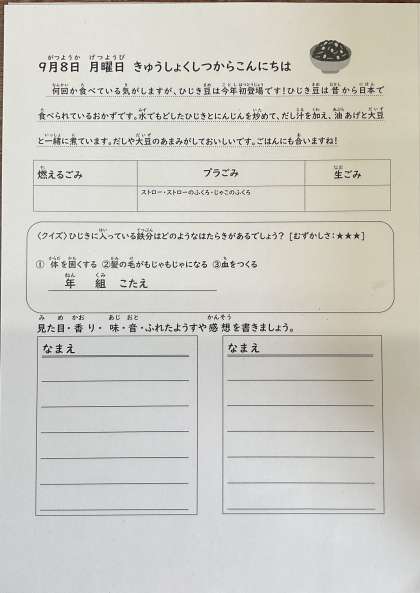 9月8日 月曜日 きゅうしょくしつからこんにちは
何回か食べている気がしますが、ひじき豆は今年初登場です!ひじき豆は昔から日本で
食べられているおかずです。水でもどしたひじきとにんじんを炒めて、だし汁を加え、油あげと大豆
と一緒に煮ています。だしや大豆のあまみがしておいしいです。ごはんにも合いますね!
燃えるごみ プラごみ 生ごみ
ストロー・ストローのふくろ・じゃこのふくろ
〈クイズ〉ひじきに入っている鉄分はどのようなはたらきがあるでしょう? [むずかしさ:★★★]
① 体を固くする ②髪の毛がもじゃもじゃになる ③血をつくる
年 組 こたえ
見た目・香り・味・音・ふれたようすや感想を書きましょう。
なまえ なまえ